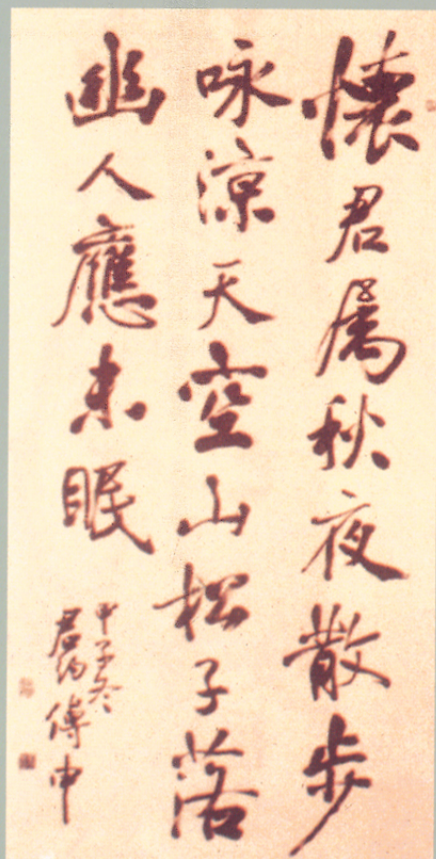 懷君属秋夜散步
咏涼天空山松子落
幽人應未眠
甲子冬
君約傅申